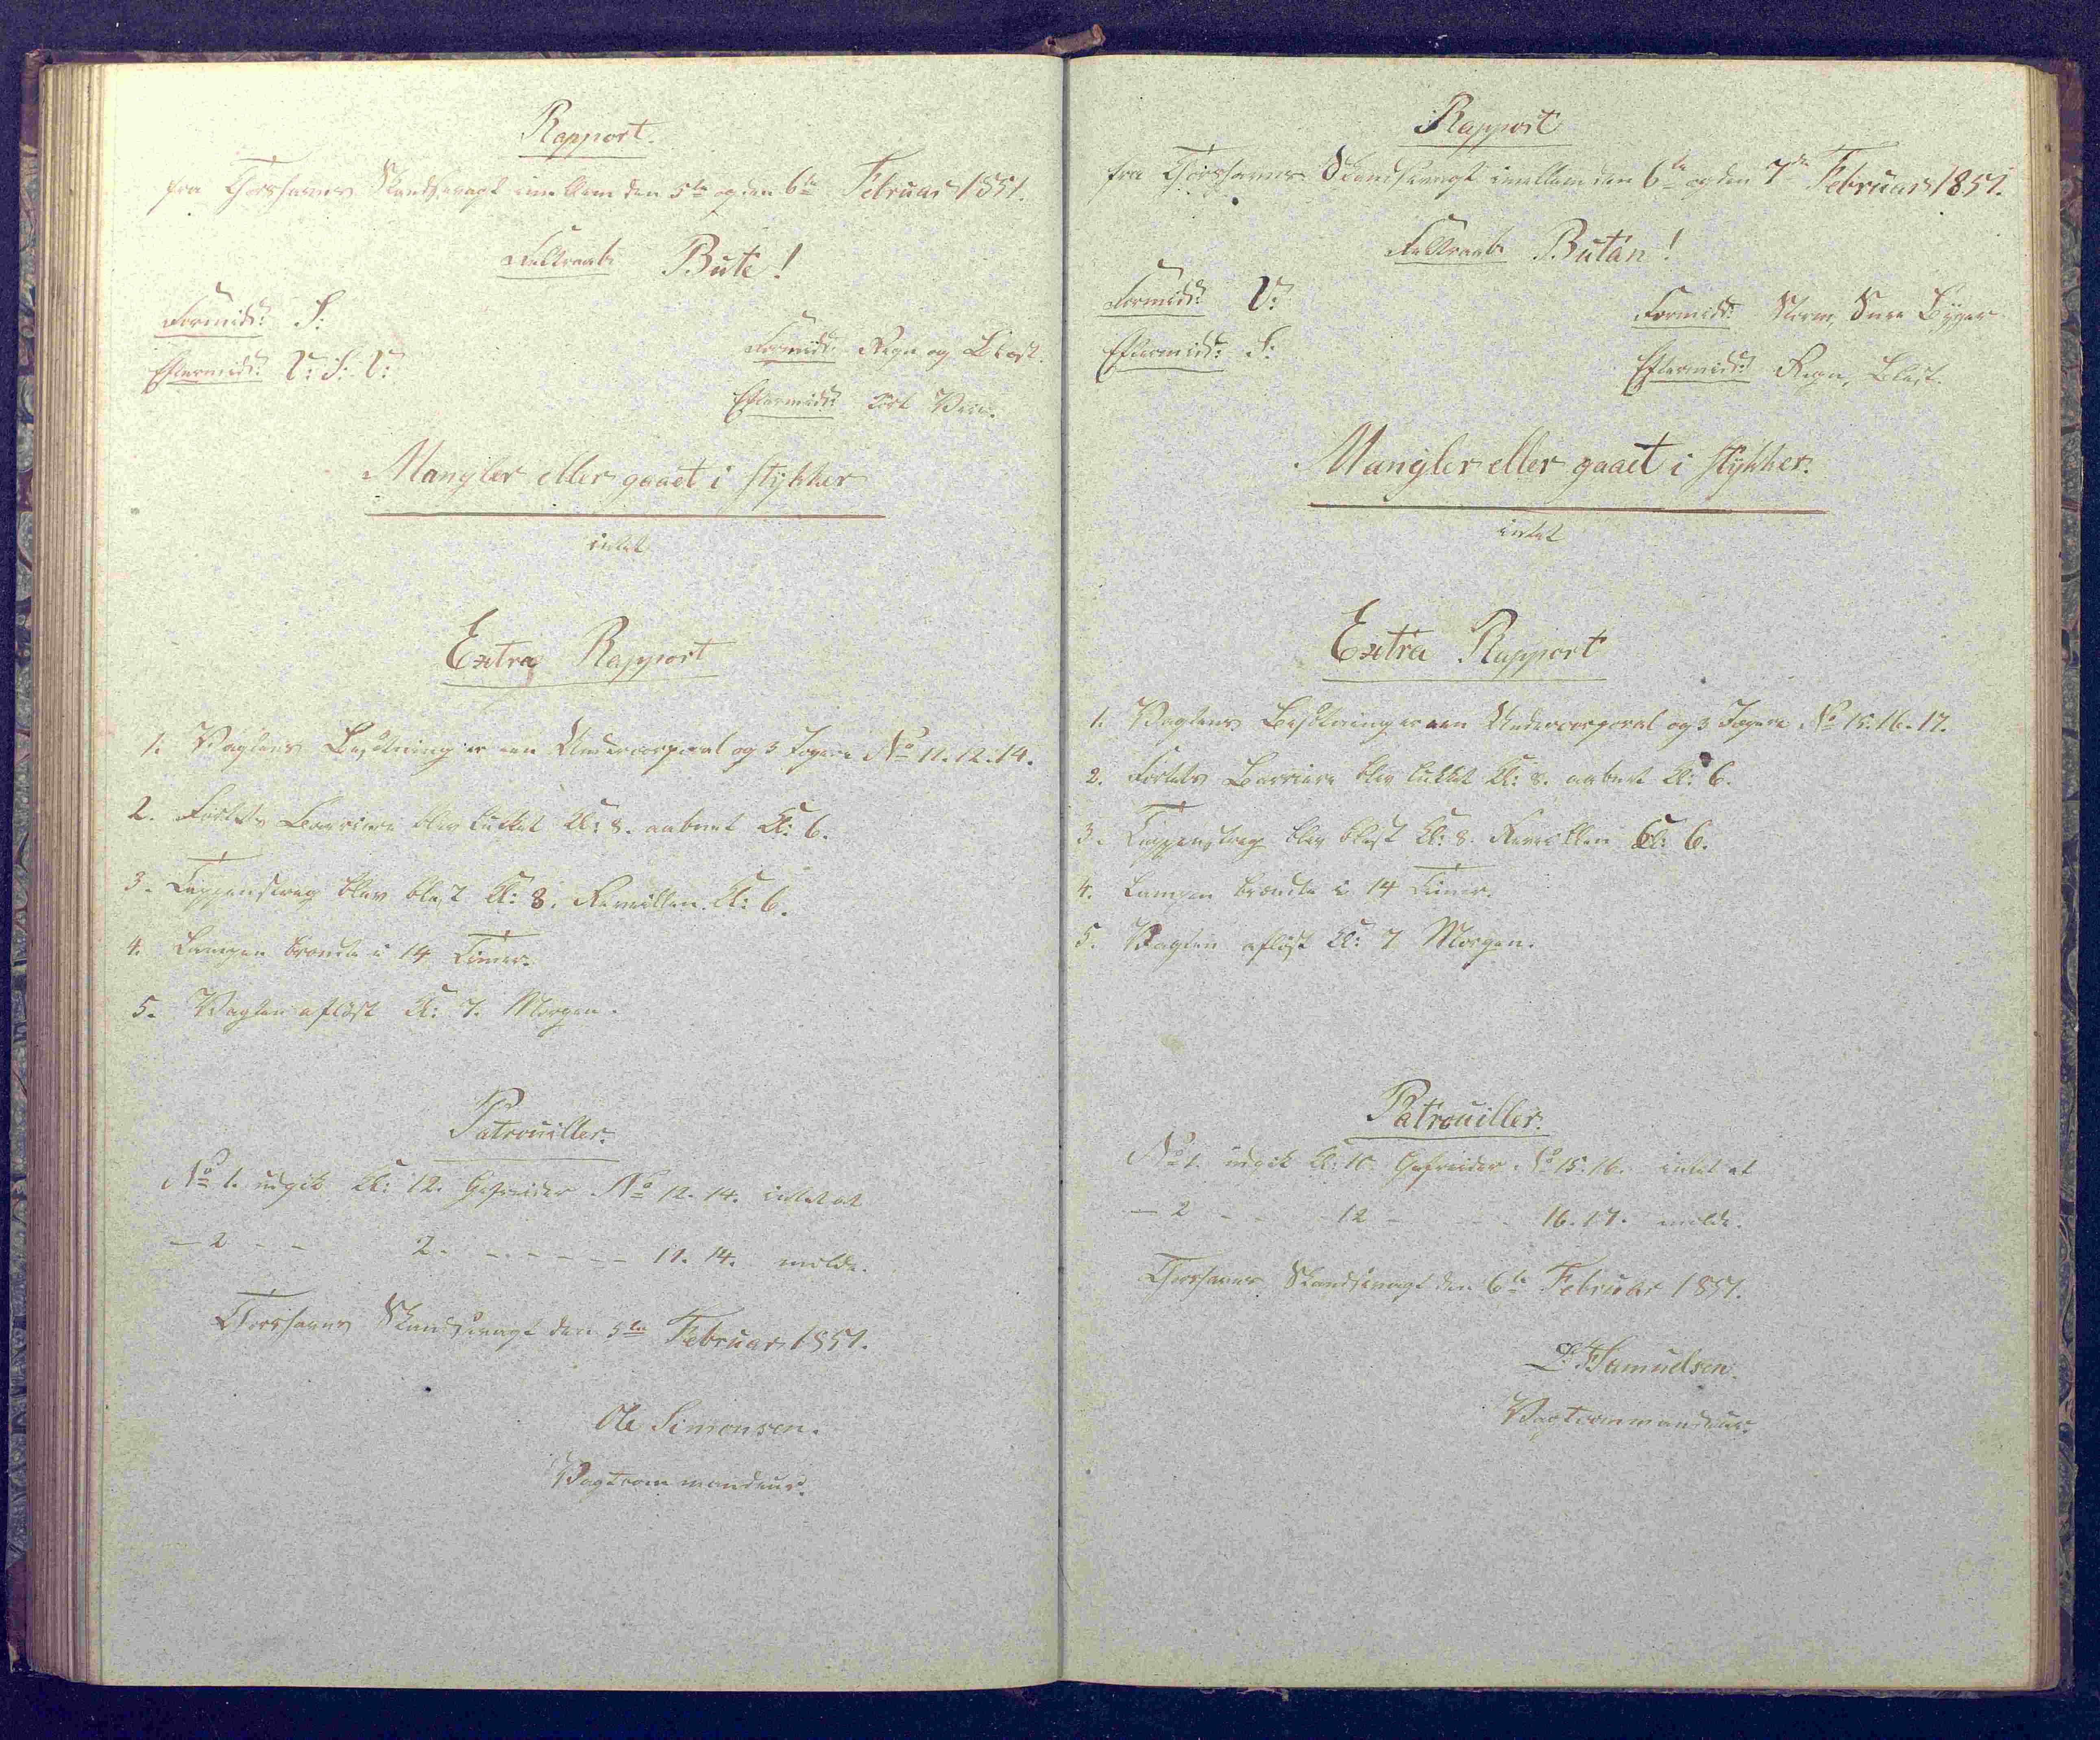 Rapport.
fra Thorshavns Skandsevagt imellem den 5te og den 6te Februar 1851.
Feltraab Bute!
Formidd: S:
Eftermidd: V: S: V:
Formidd: Regn og Blæst.
Eftermidd:
Mangler eller gaaet i stykker
intet
Extra Rapport
1. Vagtens Besætning er een Undercorporal og 3 Jægere No 11. 12. 14.
2. Fortets Barriere blev lukket Kl: 8. aabnet Kl: 6.
3. Tappenstreg blev blæst Kl: 8. Reveillen Kl: 6.
4. Lampen brændte i 14 Timer.
5. Vagten afløst Kl: 7. Morgen.
Patrouiller.
No 1. udgik Kl: 12. Gefreider No 12. 14. intet at
— 2 - - 2. - - - - - - 11. 14. melde.
Thorshavns Skandsevagt den 5te Februar 1851.
Ole Simonsen.
Vagtcommandeur.
Rapport
fra Thorshavns Skandsevagt imellem den 6te og den 7de Februar 1851.
Feltraab Butan!
Formidd: V:
Eftermidd: S:
Formidd: Storm, Snee Byger
Eftermidd: Regn, Blæst.
Mangler eller gaaet i stykker.
intet
Extra Rapport
1. Vagtens Besætning er een Undercorporal og 3 Jægere No 15. 16. 17.
2. Fortets Barriere blev lukket Kl: 8. aabnet Kl: 6.
3. Tappenstreg blev blæst Kl: 8. Reveillen Kl: 6.
4. Lampen brændte i 14 Timer.
5. Vagten afløst Kl: 7 Morgen.
Patrouiller.
No 1. udgik Kl: 10. Gefreider No 15. 16. intet at
— 2 - - - 12 - - - 16. 17. melde.
Thorshavns Skandsevagt den 6te Februar 1851.
Samuelsen.
Vagtcommandeur.